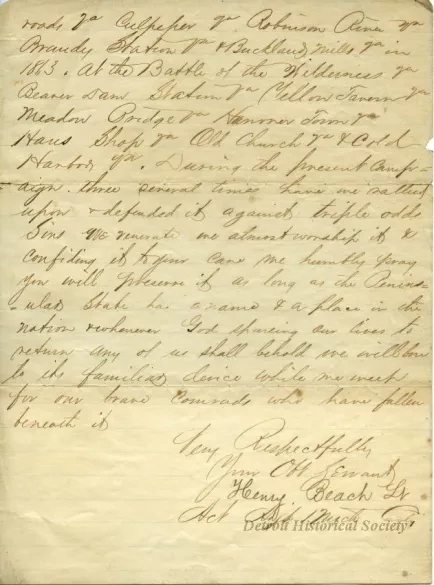 roads Va Culpeper Va Robinson River Va
Brandy Station Va & Buckland Mills Va in
1863. At the Battle of the Wilderness Va
Beaver Dam Station Va Yellow Tavern Va
Meadow Bridge Va Hanover Town Va
Haws Shop Va Old Church Va & Cold
Harbor Va. During the present Camp-
aign three several times have we rallied
upon & defended it against triple odds
We venerate we almost worship it &
confiding it to your care we humbly pray
you will preserve it as long as the Penins-
ular State has a name & a place in the
nation & whenever God sparing our lives to
return any of us shall behold we will bow
to its familiar device while we weep
for our brave Comrads who have fallen
beneath it
Very Respectfully
Your Obt Servant
Henry Beach Lt
Act Adjt
Detroit Historical Society